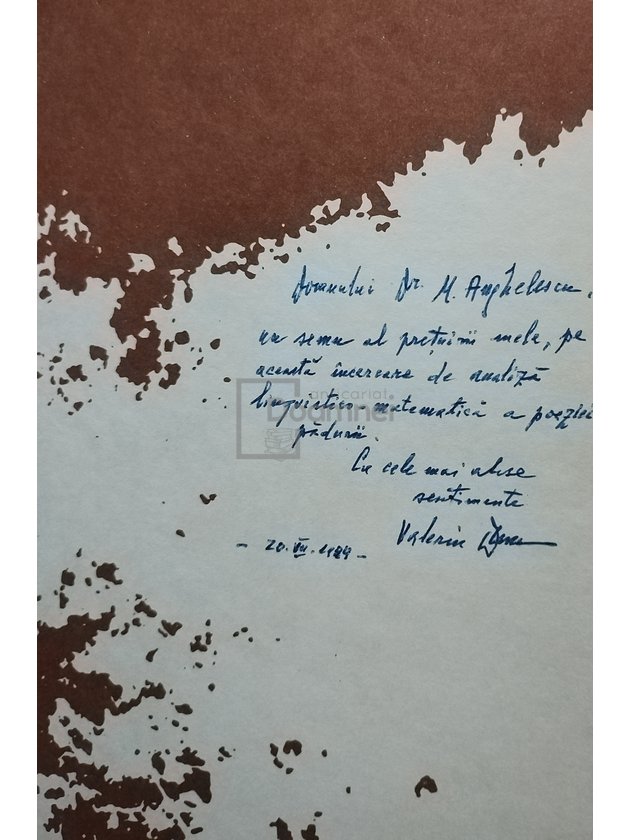 Domnului Dr. M. Anghelescu,
un semn al prețuirii mele, pe
această încercare de analiză
lingvistico-matematică a poeziei
pădurii.
Cu cele mai alese
sentimente
Valeriu
- 20.VII.1989 -
anticariat
Doamnei